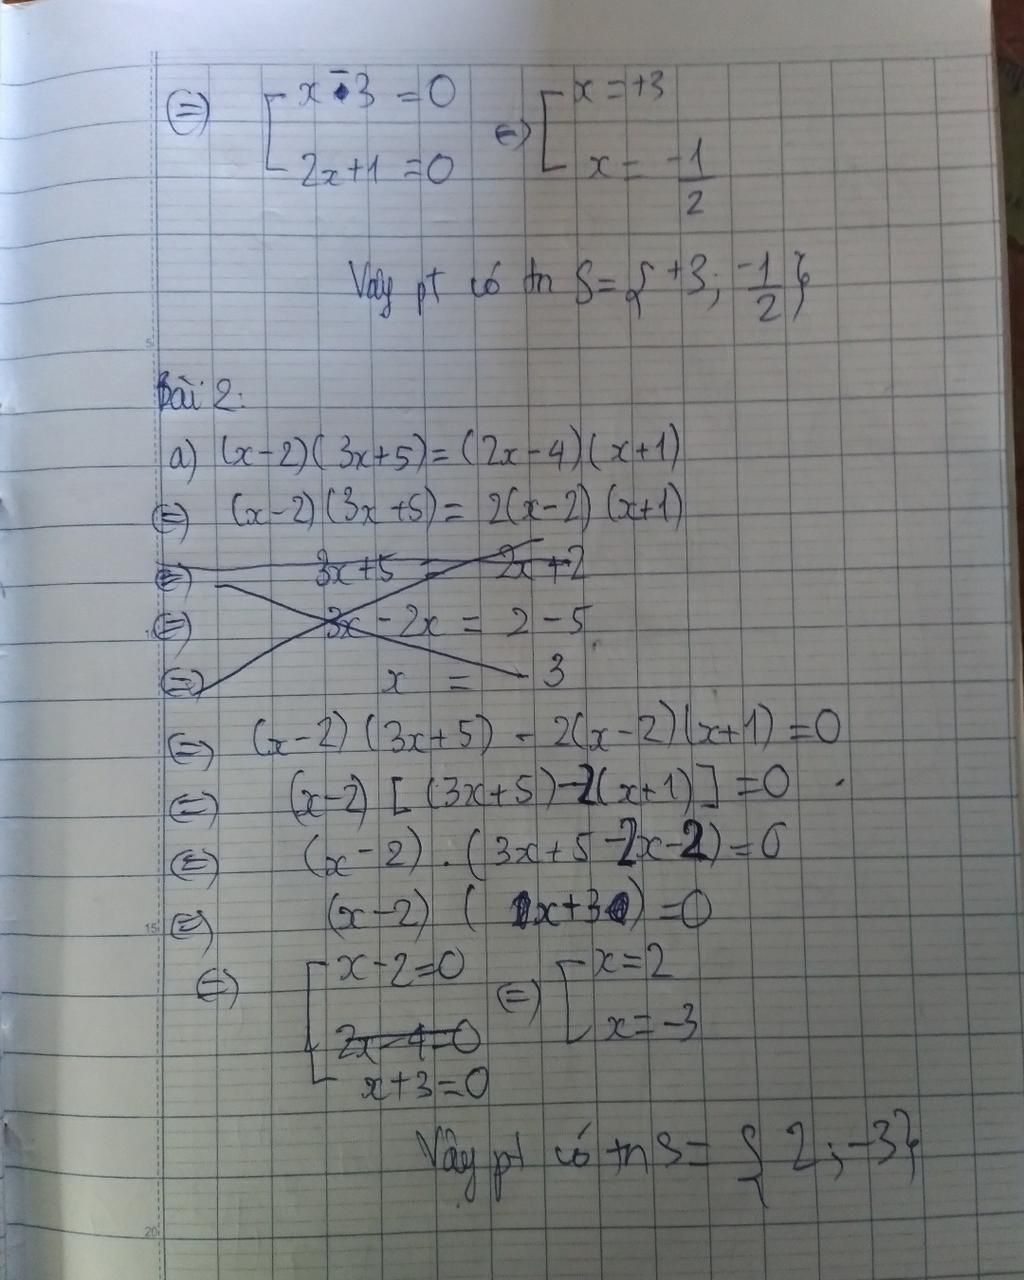 ⇔ [ x - 3 = 0 ⇔ [ x = +3
2x+1 = 0 x = -1/2
Vậy pt có tn S = { +3; -1/2 }
5
Bài 2:
a) (x-2)(3x+5)=(2x-4)(x+1)
⇔ (x-2)(3x+5)= 2(x-2)(x+1)
⇔ 3x+5 = 2x+2
⇔ 3x - 2x = 2 - 5
⇔ x = 3
⇔ (x-2)(3x+5) - 2(x-2)(x+1) = 0
⇔ (x-2) [ (3x+5)-2(x+1) ] = 0
⇔ (x-2) . (3x+5-2x-2) = 0
⇔ (x-2) ( 1x+3 ) = 0
15
⇔ [ x-2=0 ⇔ [ x=2
2x-4=0 x=-3
x+3=0
Vậy pt có tn S = { 2; -3}
20